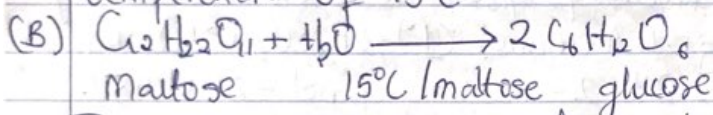 (B) C12H22O11 + H2O ⟶ 2 C6H12O6
Maltose 15°C /maltose glucose